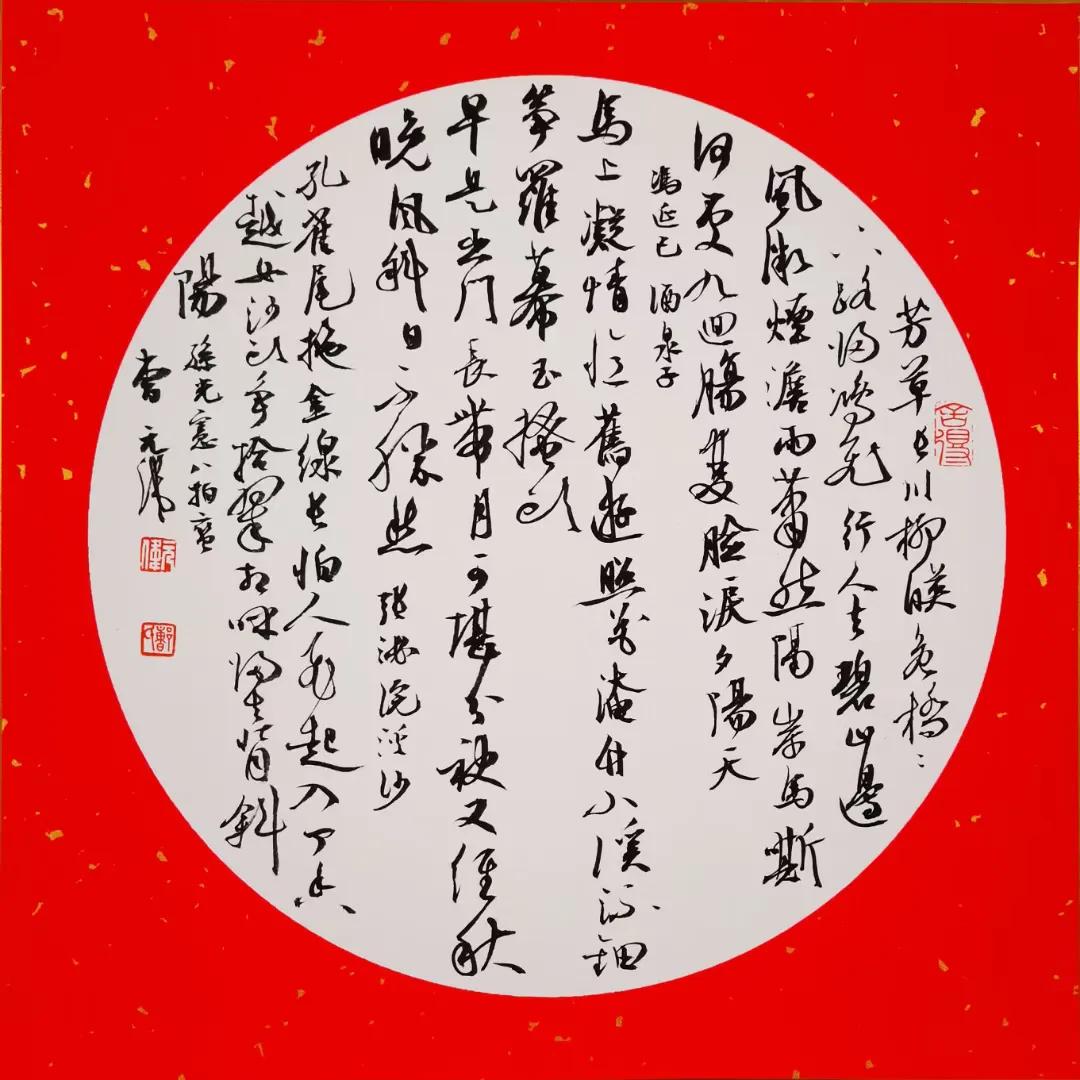 芳草長川柳映危橋〻
下路歸鴻飛行人去碧山邊
風微煙澹雨蕭然隔岸馬嘶
何處九迴腸雙臉淚夕陽天
馮延巳 酒泉子
馬上凝情憶舊遊照花淹竹小溪流鈿
箏羅幕玉搔頭
早是出門長帶月可堪分袂又經秋
晚風斜日不勝愁 張泌浣溪沙
孔雀尾拖金線長怕人飛起入丁香
越女沙頭爭拾翠相呼歸去背斜
陽
孫光憲八拍蠻
曹元偉
舍得
元偉